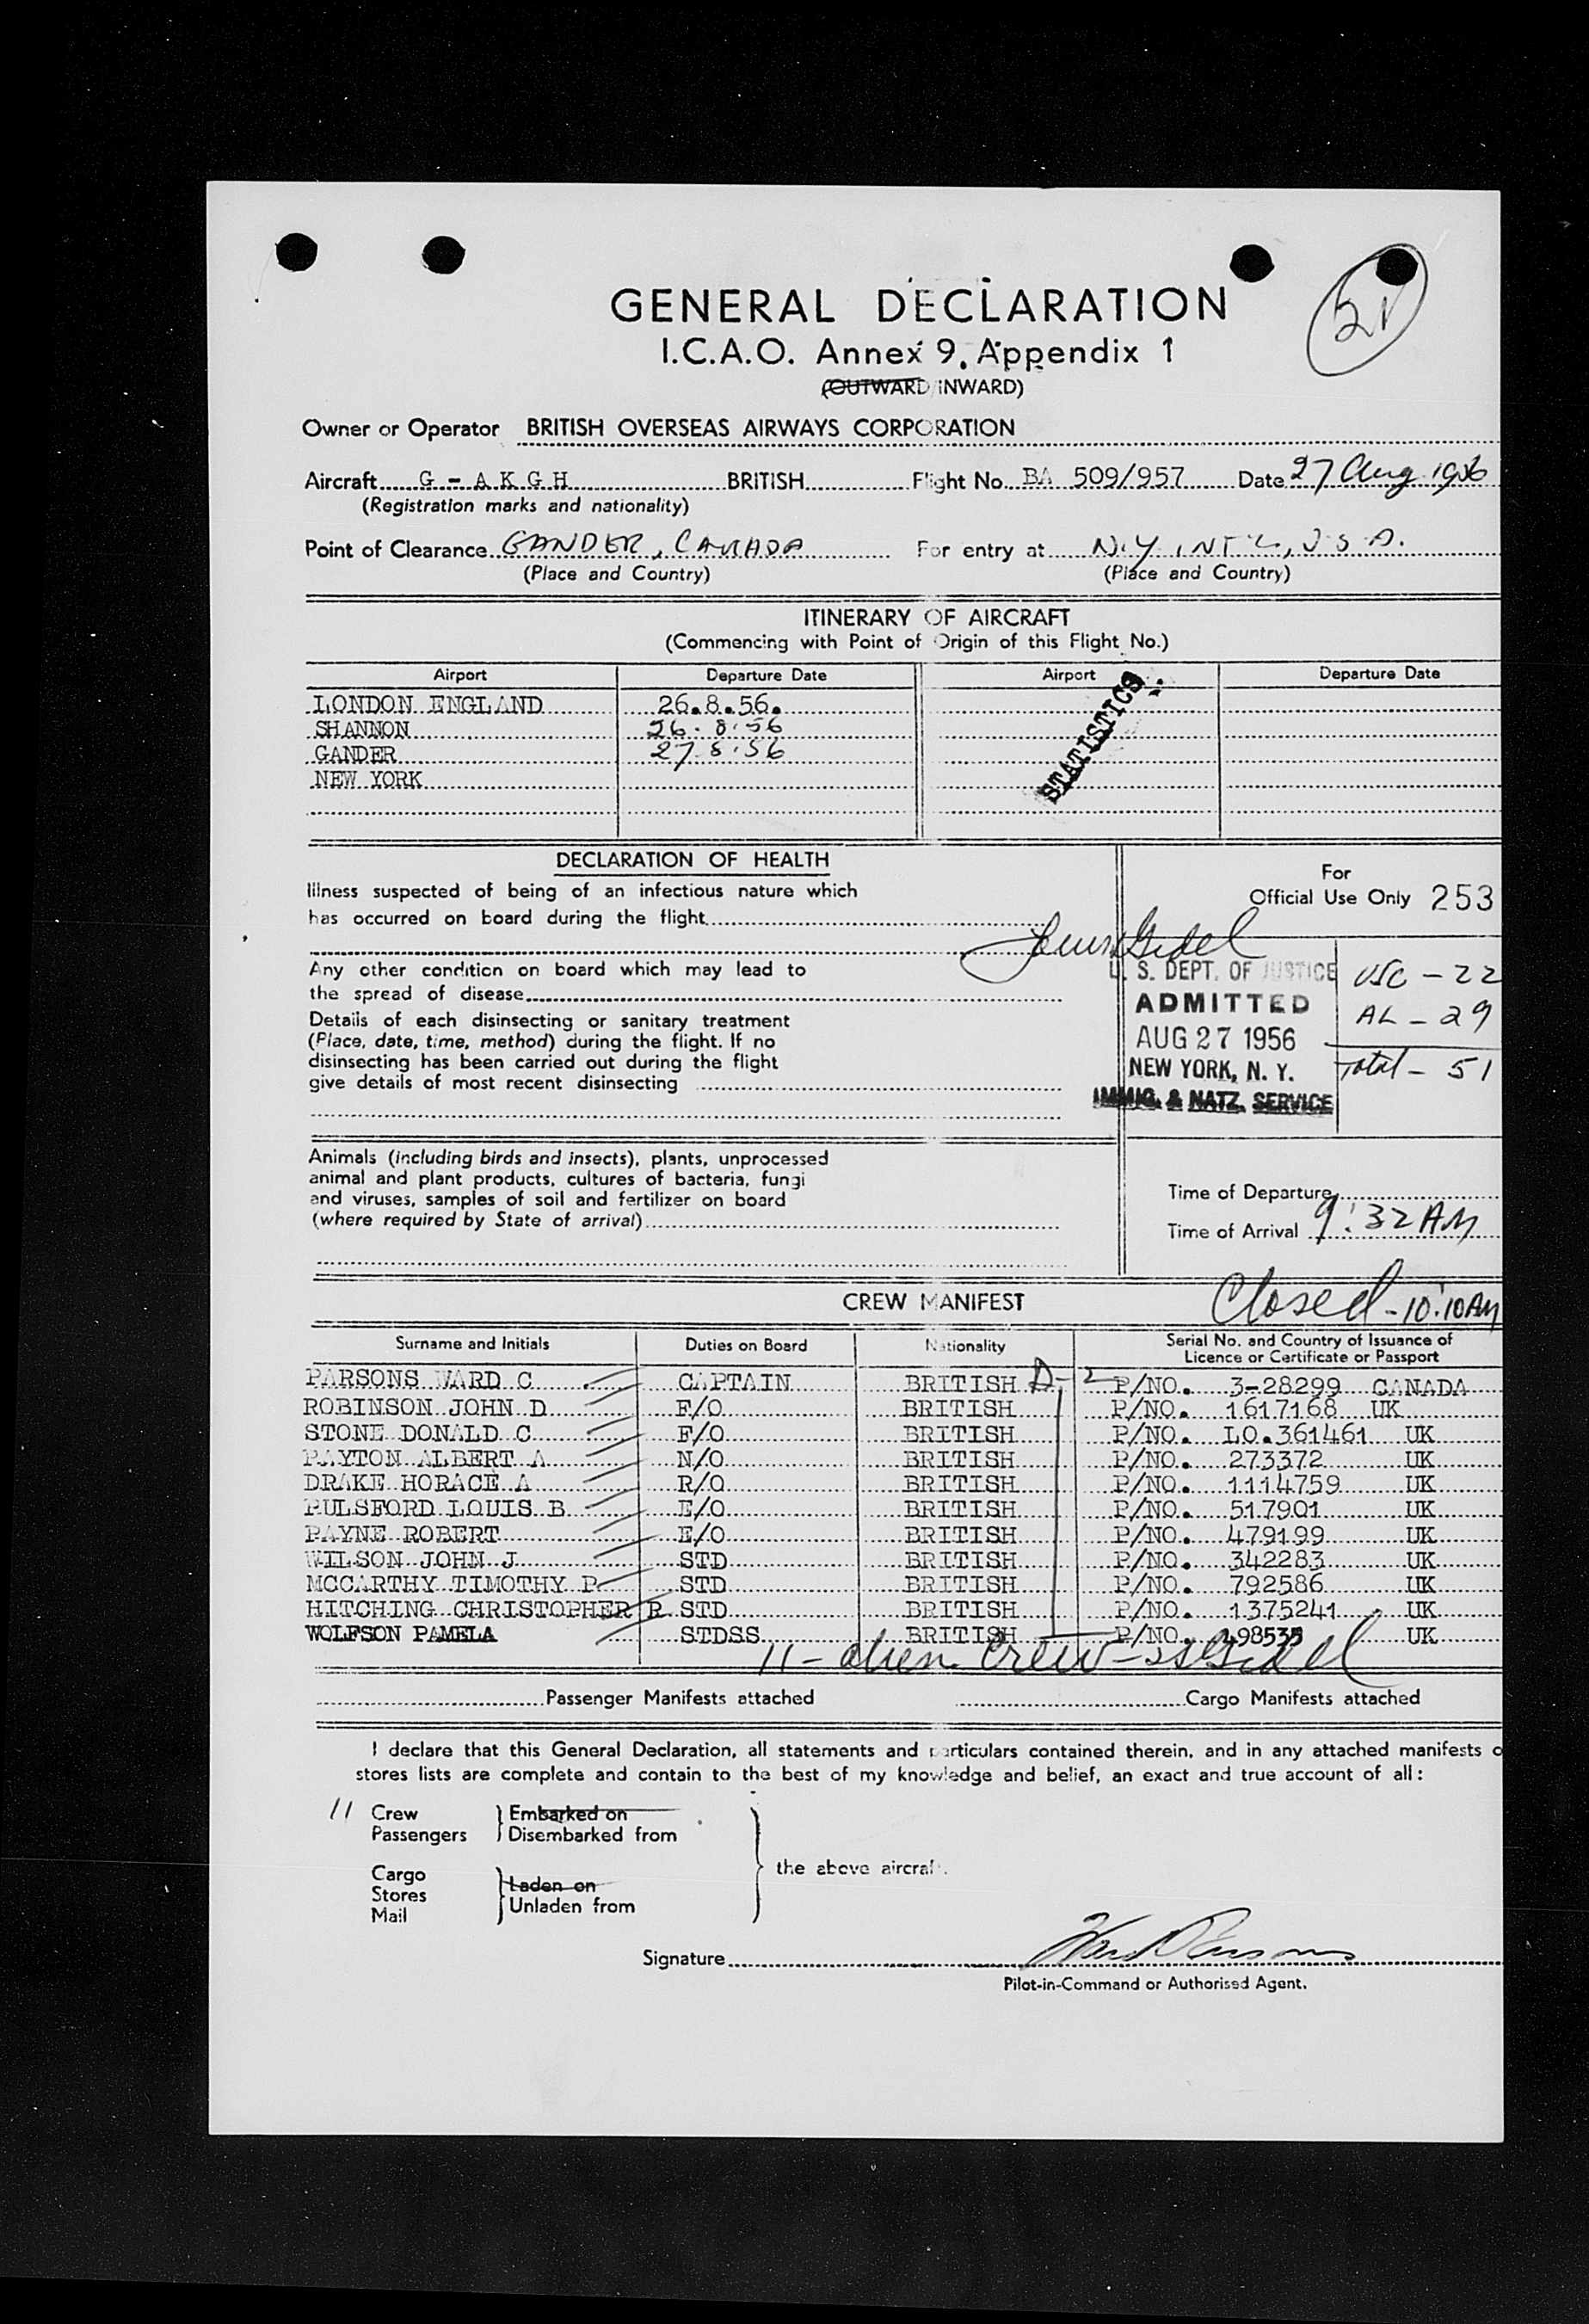 GENERAL DECLARATION
I.C.A.O. Annex 9, Appendix 1
(OUTWARD/INWARD)
Owner or Operator BRITISH OVERSEAS AIRWAYS CORPORATION
Aircraft G - A K G H BRITISH Flight No. BA 509/957 Date 27 Aug 1956
(Registration marks and nationality)
Point of Clearance GANDER, CANADA For entry at N.Y. INT'L, U.S.A.
(Place and Country) (Place and Country)
ITINERARY OF AIRCRAFT
(Commencing with Point of Origin of this Flight No.)
Airport Departure Date Airport Departure Date
LONDON ENGLAND 26.8.56.
SHANNON 26.8.56
GANDER 27.8.56
NEW YORK
STATISTICS
DECLARATION OF HEALTH
Illness suspected of being of an infectious nature which
has occurred on board during the flight
Any other condition on board which may lead to
the spread of disease
Details of each disinsecting or sanitary treatment
(Place, date, time, method) during the flight. If no
disinsecting has been carried out during the flight
give details of most recent disinsecting
For
Official Use Only 253
U. S. DEPT. OF JUSTICE
ADMITTED
AUG 27 1956
NEW YORK, N. Y.
IMMIG. & NATZ. SERVICE
USC - 22
AL - 29
Total - 51
Animals (including birds and insects), plants, unprocessed
animal and plant products, cultures of bacteria, fungi
and viruses, samples of soil and fertilizer on board
(where required by State of arrival)
Time of Departure
Time of Arrival 9:32 AM
Closed - 10:10 AM
CREW MANIFEST
Surname and Initials Duties on Board Nationality Serial No. and Country of Issuance of
Licence or Certificate or Passport
PARSONS WARD C CAPTAIN BRITISH D-2 P/NO. 3-28299 CANADA
ROBINSON JOHN D F/O BRITISH P/NO. 1617168 UK
STONE DONALD C F/O BRITISH P/NO. LO.361461 UK
PAYTON ALBERT A N/O BRITISH P/NO. 273372 UK
DRAKE HORACE A R/O BRITISH P/NO. 1114759 UK
PULSFORD LOUIS B E/O BRITISH P/NO. 517901 UK
PAYNE ROBERT E/O BRITISH P/NO. 479199 UK
WILSON JOHN J STD BRITISH P/NO. 342283 UK
MCCARTHY TIMOTHY P STD BRITISH P/NO. 792586 UK
HITCHING CHRISTOPHER R STD BRITISH P/NO. 1375241 UK
WOLFSON PAMELA STDSS BRITISH P/NO. 98535 UK
11 - alien crew -
Passenger Manifests attached Cargo Manifests attached
I declare that this General Declaration, all statements and particulars contained therein, and in any attached manifests o
stores lists are complete and contain to the best of my knowledge and belief, an exact and true account of all:
11 Crew Embarked on
Passengers Disembarked from
the above aircraft.
Cargo Laden on
Stores
Mail Unladen from
Signature
Pilot-in-Command or Authorised Agent.